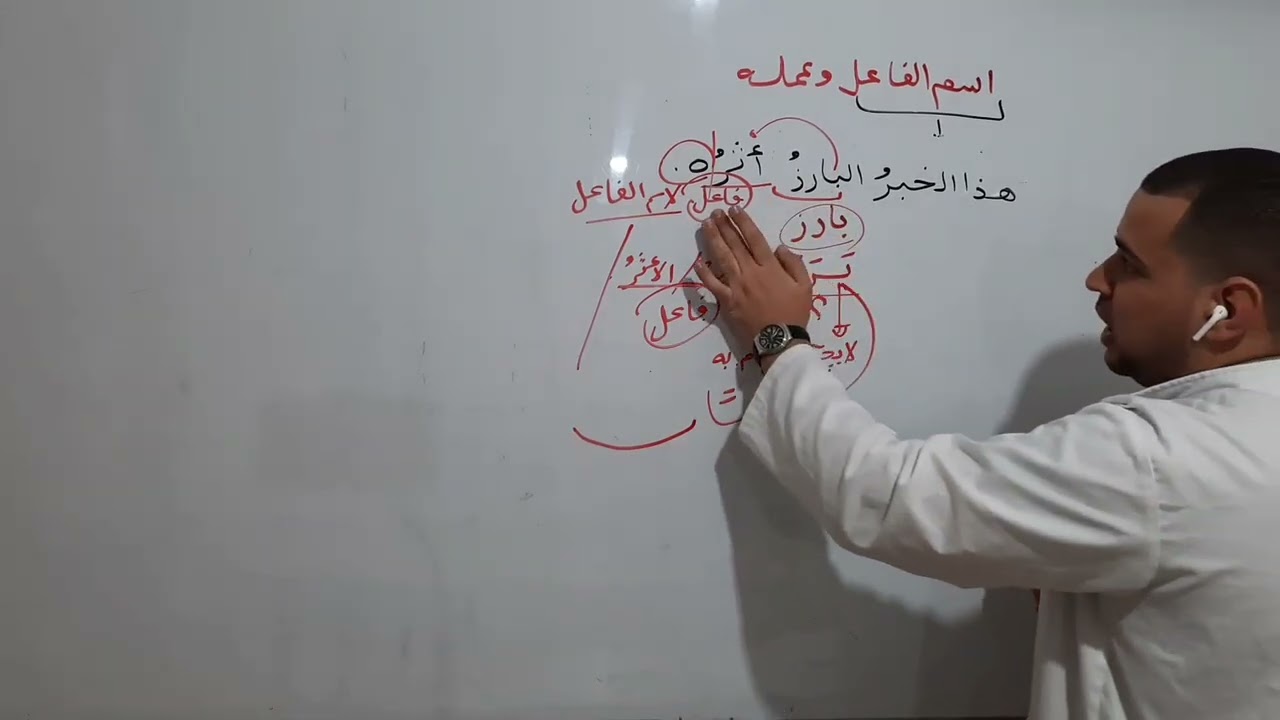 اسم الفاعل وعمله
هذا الخبرُ البارزُ أثرُه.
فاعل لاسم الفاعل
بارز
الأثرُ
فاعل
به